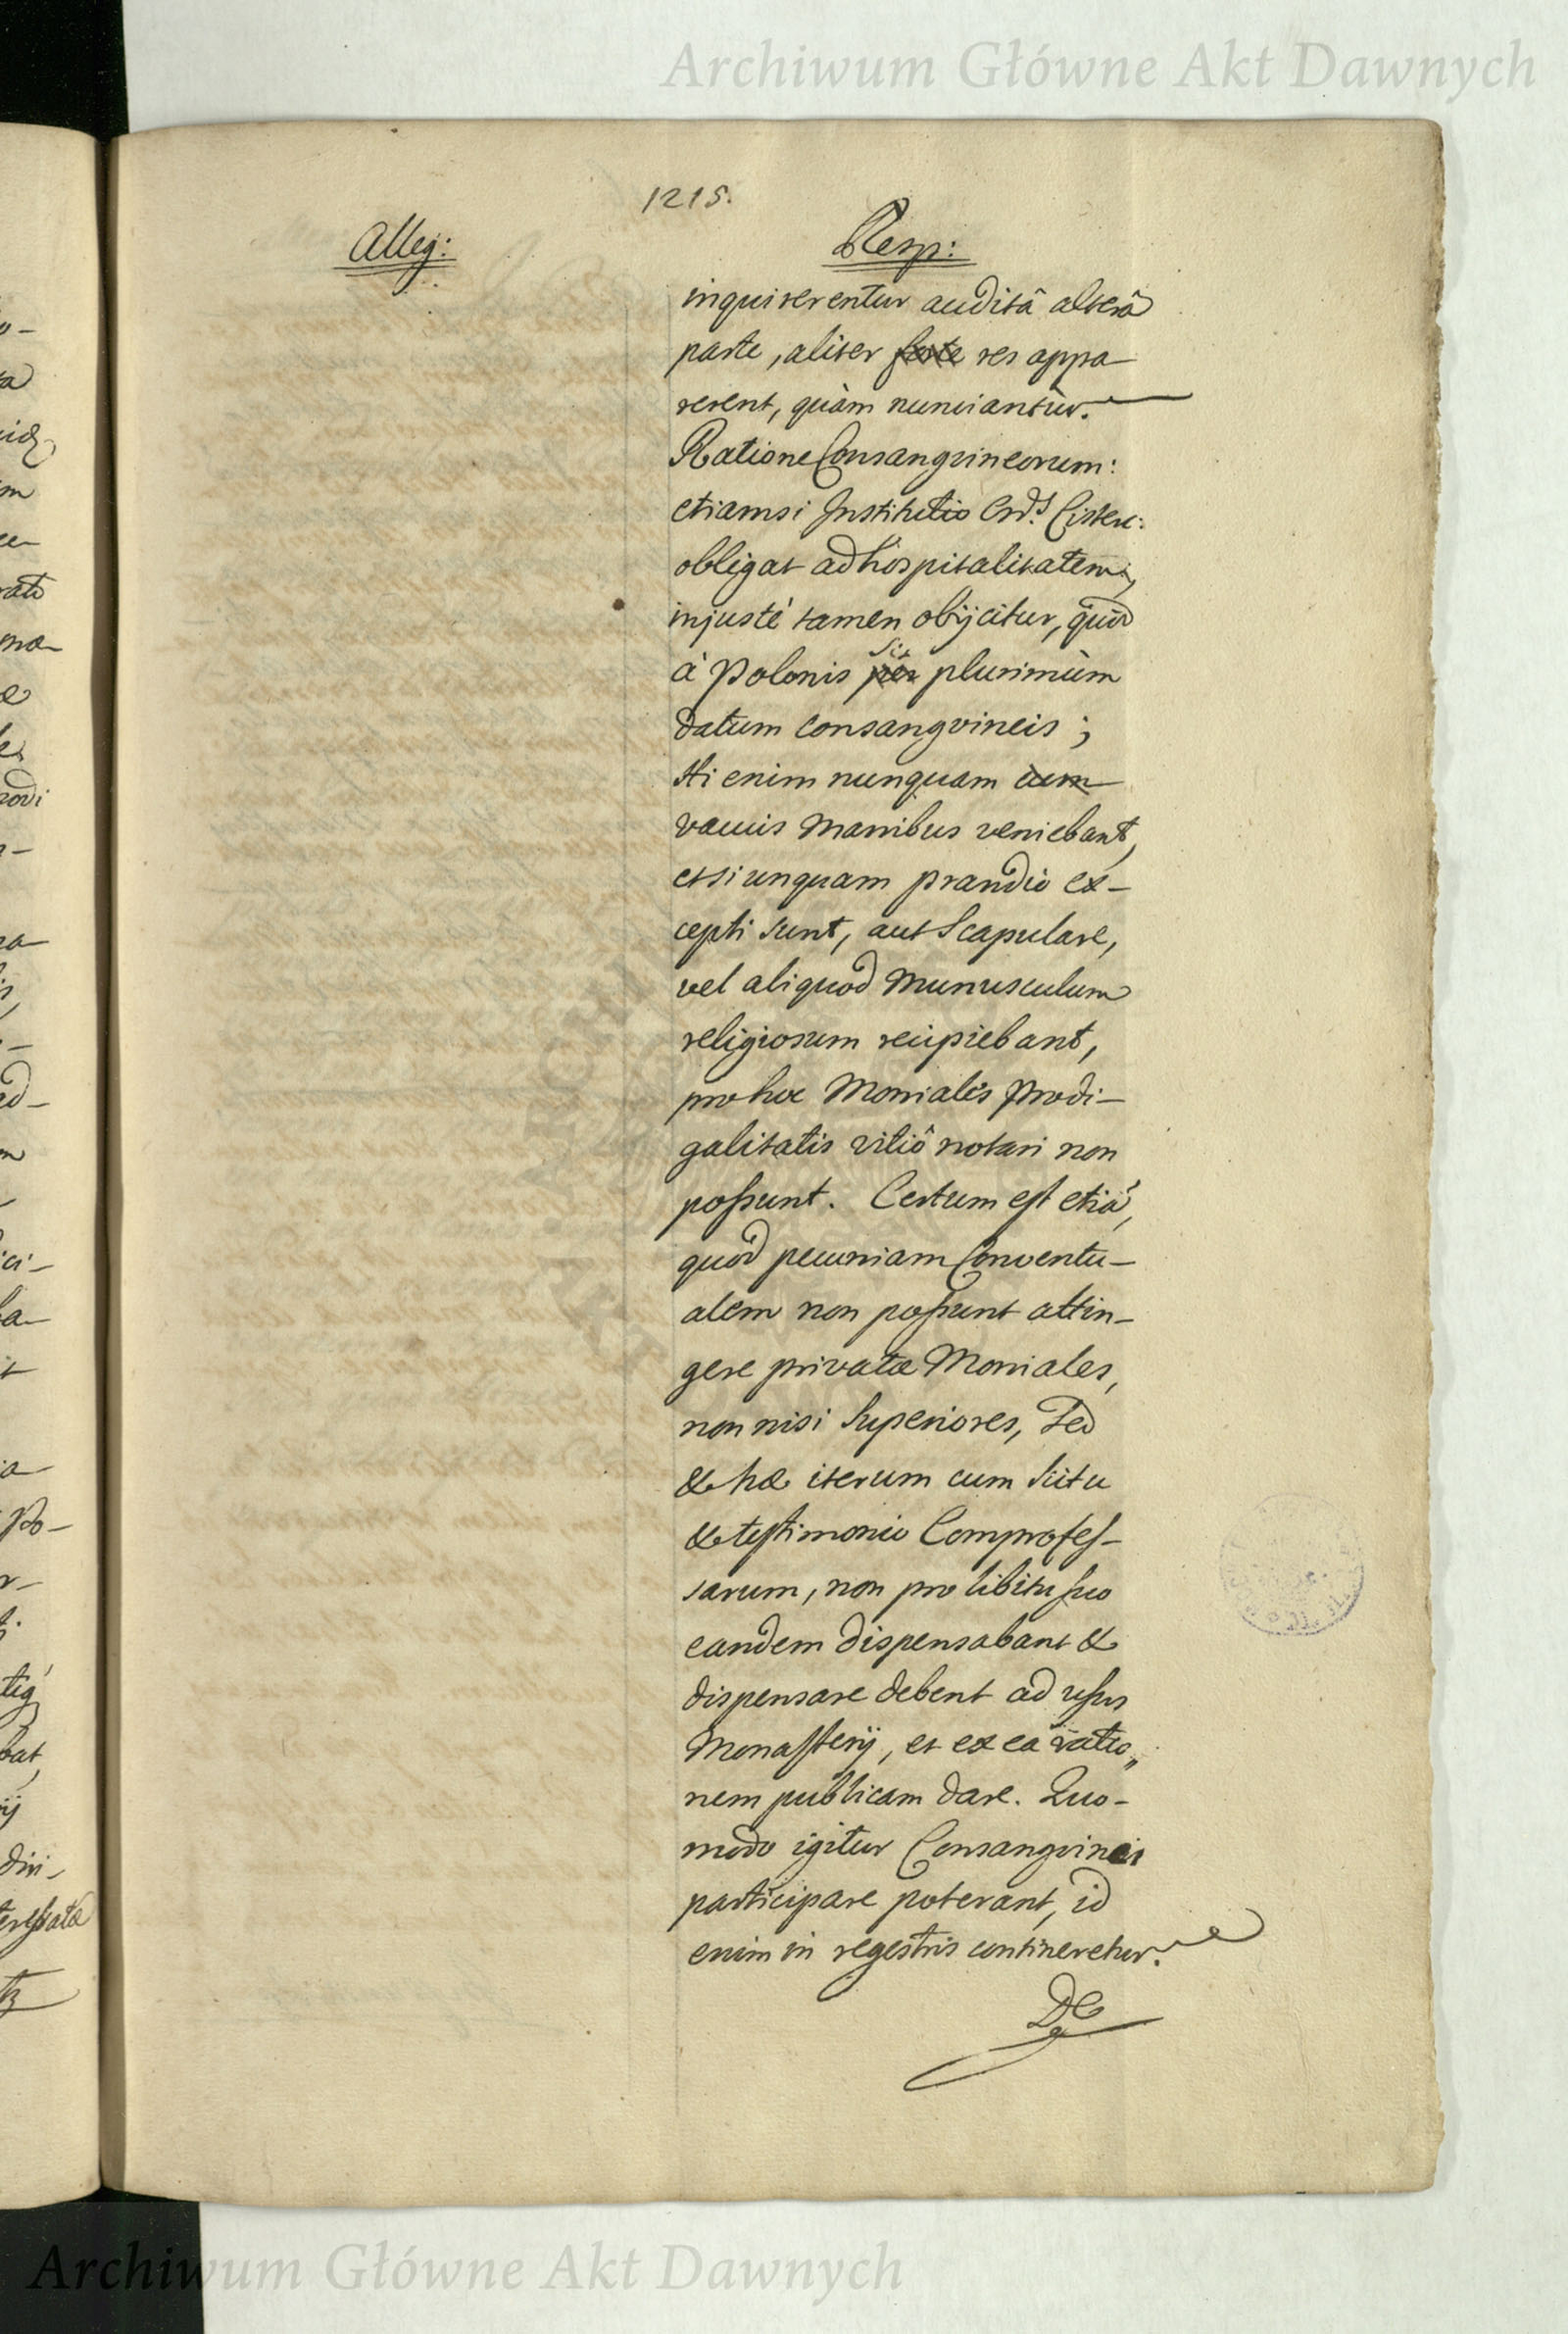 Archiwum Główne Akt Dawnych
1215.
Alleg:
Resp:
inquirerentur auditâ alterâ
parte, aliter forte res appa-
rerent, quàm nunciantur.
Ratione Consangvineorum:
etiamsi Institutio Ord.s Cisterc:
obligat ad hospitalitatem,
injustè tamen obijcitur, quòd
à Polonis per sit plurimùm
datum consangvineis;
Hi enim nunquam cum
vacuis manibus veniebant,
et si unquam prandio ex-
cepti sunt, aut Scapulare,
vel aliquod munusculum
religiosum recipiebant,
pro hoc Moniales Prodi-
galitatis vitiô notari non
possunt. Certum est etiã,
quòd pecuniam Conventu-
alem non possunt attin-
gere privatæ Moniales,
non nisi Superiores, sed
& hæ iterum cum scitu
& testimonio Comprofes-
sarum, non pro libitu suo
eandem dispensabant &
dispensare debent ad usus
Monasterij, et ex ea ratio„
nem publicam dare. Quo-
modo igitur Consangvinei
participare poterant, id
enim in regestris contineretur.
De
Archiwum Główne Akt Dawnych